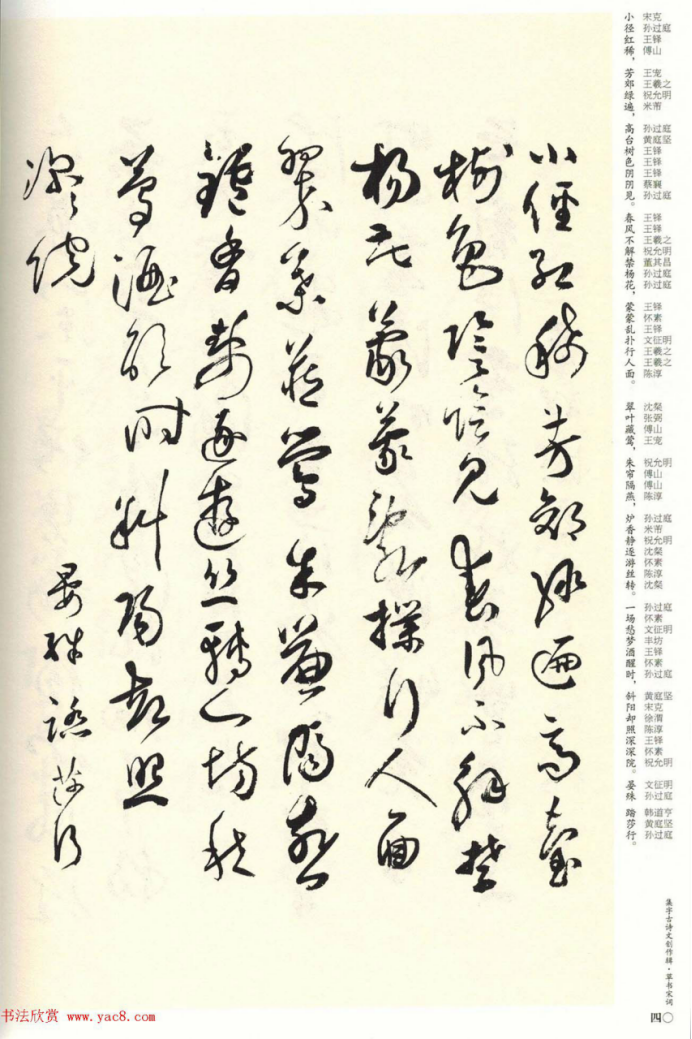 小徑紅稀芳郊綠遍高臺
樹色陰陰見春風不解禁
楊花蒙蒙亂撲行人面
翠葉藏鶯朱簾隔燕
爐香靜逐遊絲轉一場愁
夢酒醒時斜陽却照
深深院 晏殊 踏莎行
小 宋克
径 孙过庭
红 王铎
稀， 傅山
芳 王宠
郊 王羲之
绿 祝允明
遍， 米芾
高 孙过庭
台 黄庭坚
树 王铎
色 王铎
阴 王铎
阴 蔡襄
见。 孙过庭
春 王铎
风 王铎
不 王羲之
解 祝允明
禁 董其昌
杨 孙过庭
花， 孙过庭
蒙 王铎
蒙 怀素
乱 王铎
扑 文征明
行 王羲之
人 王羲之
面。 陈淳
翠 沈粲
叶 张弼
藏 傅山
莺， 王宠
朱 祝允明
帘 傅山
隔 傅山
燕， 陈淳
炉 孙过庭
香 米芾
静 祝允明
逐 沈粲
游 怀素
丝 陈淳
转。 沈粲
一 孙过庭
场 怀素
愁 文征明
梦 丰坊
酒 王铎
醒 怀素
时， 孙过庭
斜 黄庭坚
阳 宋克
却 徐渭
照 陈淳
深 王铎
深 怀素
院。 祝允明
晏 文征明
殊 孙过庭
踏 韩道亨
莎 黄庭坚
行。 孙过庭
集字古诗文创作辑·草书宋词
四〇
书法欣赏 www.yac8.com